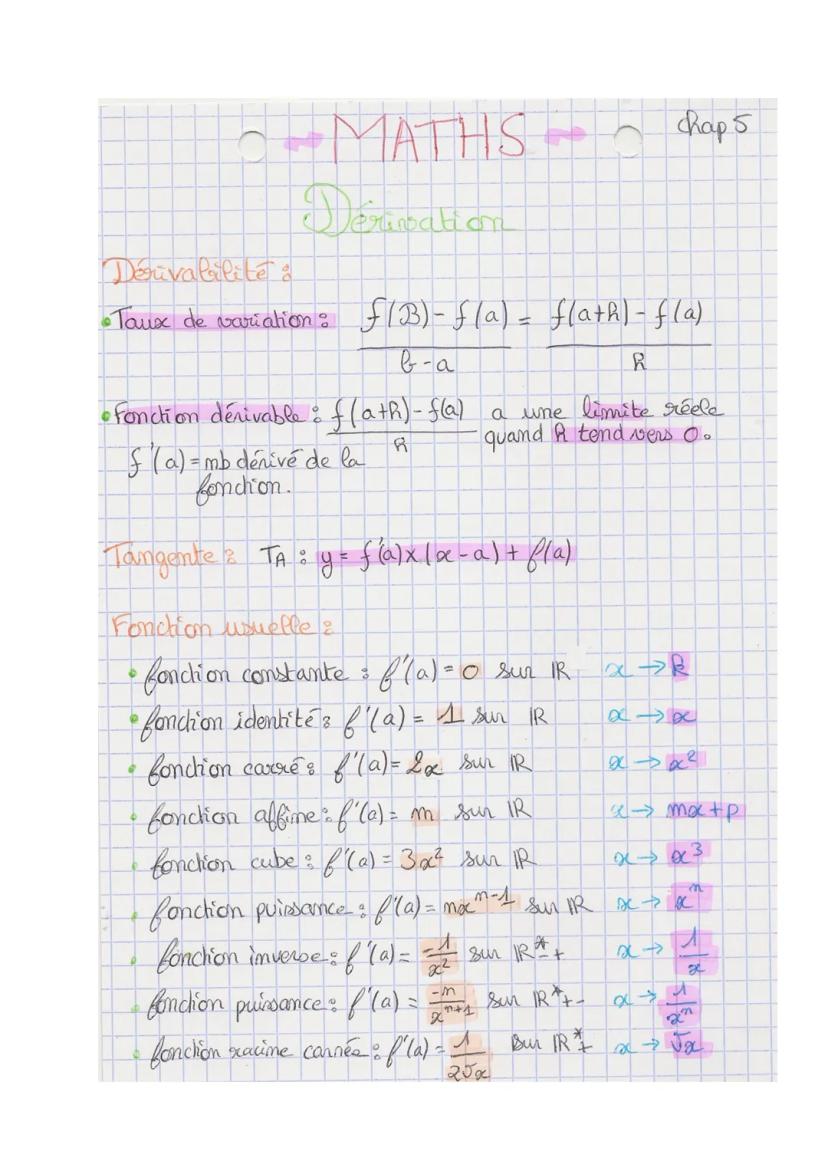 MATHS
Chap 5
Dérivation
Dérivabilité :
• Taux de variation : f(B) - f(a) / b - a = f(a+h) - f(a) / h
• Fonction dérivable : f(a+h) - f(a) / h a une limite réele
quand h tend vers 0.
f'(a) = mb dérivé de la
fonction.
Tangente : TA : y = f'(a) x (x - a) + f(a)
Fonction usuelle :
• fonction constante : f'(a) = 0 sur IR x → k
• fonction identité : f'(a) = 1 sur IR x → x
• fonction carré : f'(a) = 2x sur IR x → x²
• fonction affine : f'(a) = m sur IR x → mx + p
• fonction cube : f'(a) = 3x² sur IR x → x³
• fonction puissance : f'(a) = nx^n-1 sur IR x → x^n
• fonction inverse : f'(a) = -1/x² sur IR*-+ x → 1/x
• fonction puissance : f'(a) = -n/x^n+1 sur IR*+- x → 1/x^n
• fonction racine carrée : f'(a) = 1/2√x sur IR*+ x → √x